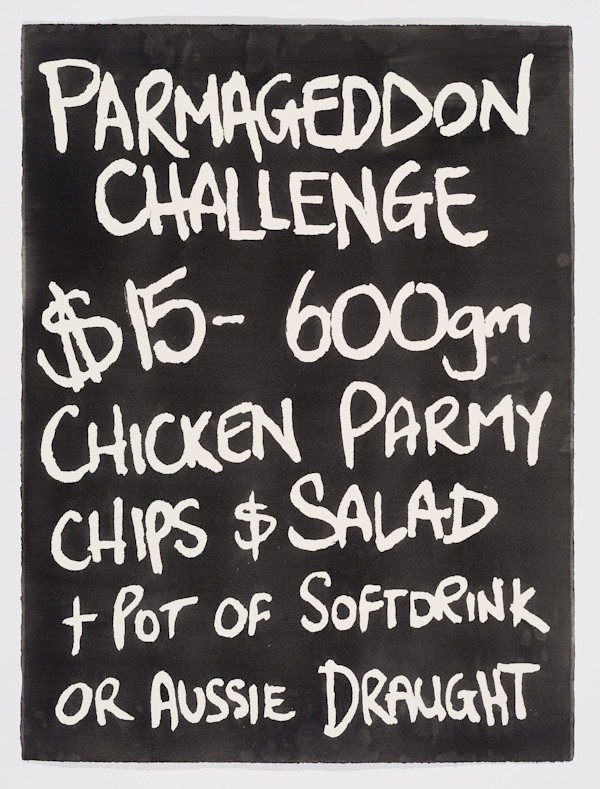 PARMAGEDDON
CHALLENGE
$15- 600gm
CHICKEN PARMY
CHIPS $ SALAD
+ POT OF SOFTDRINK
OR AUSSIE DRAUGHT